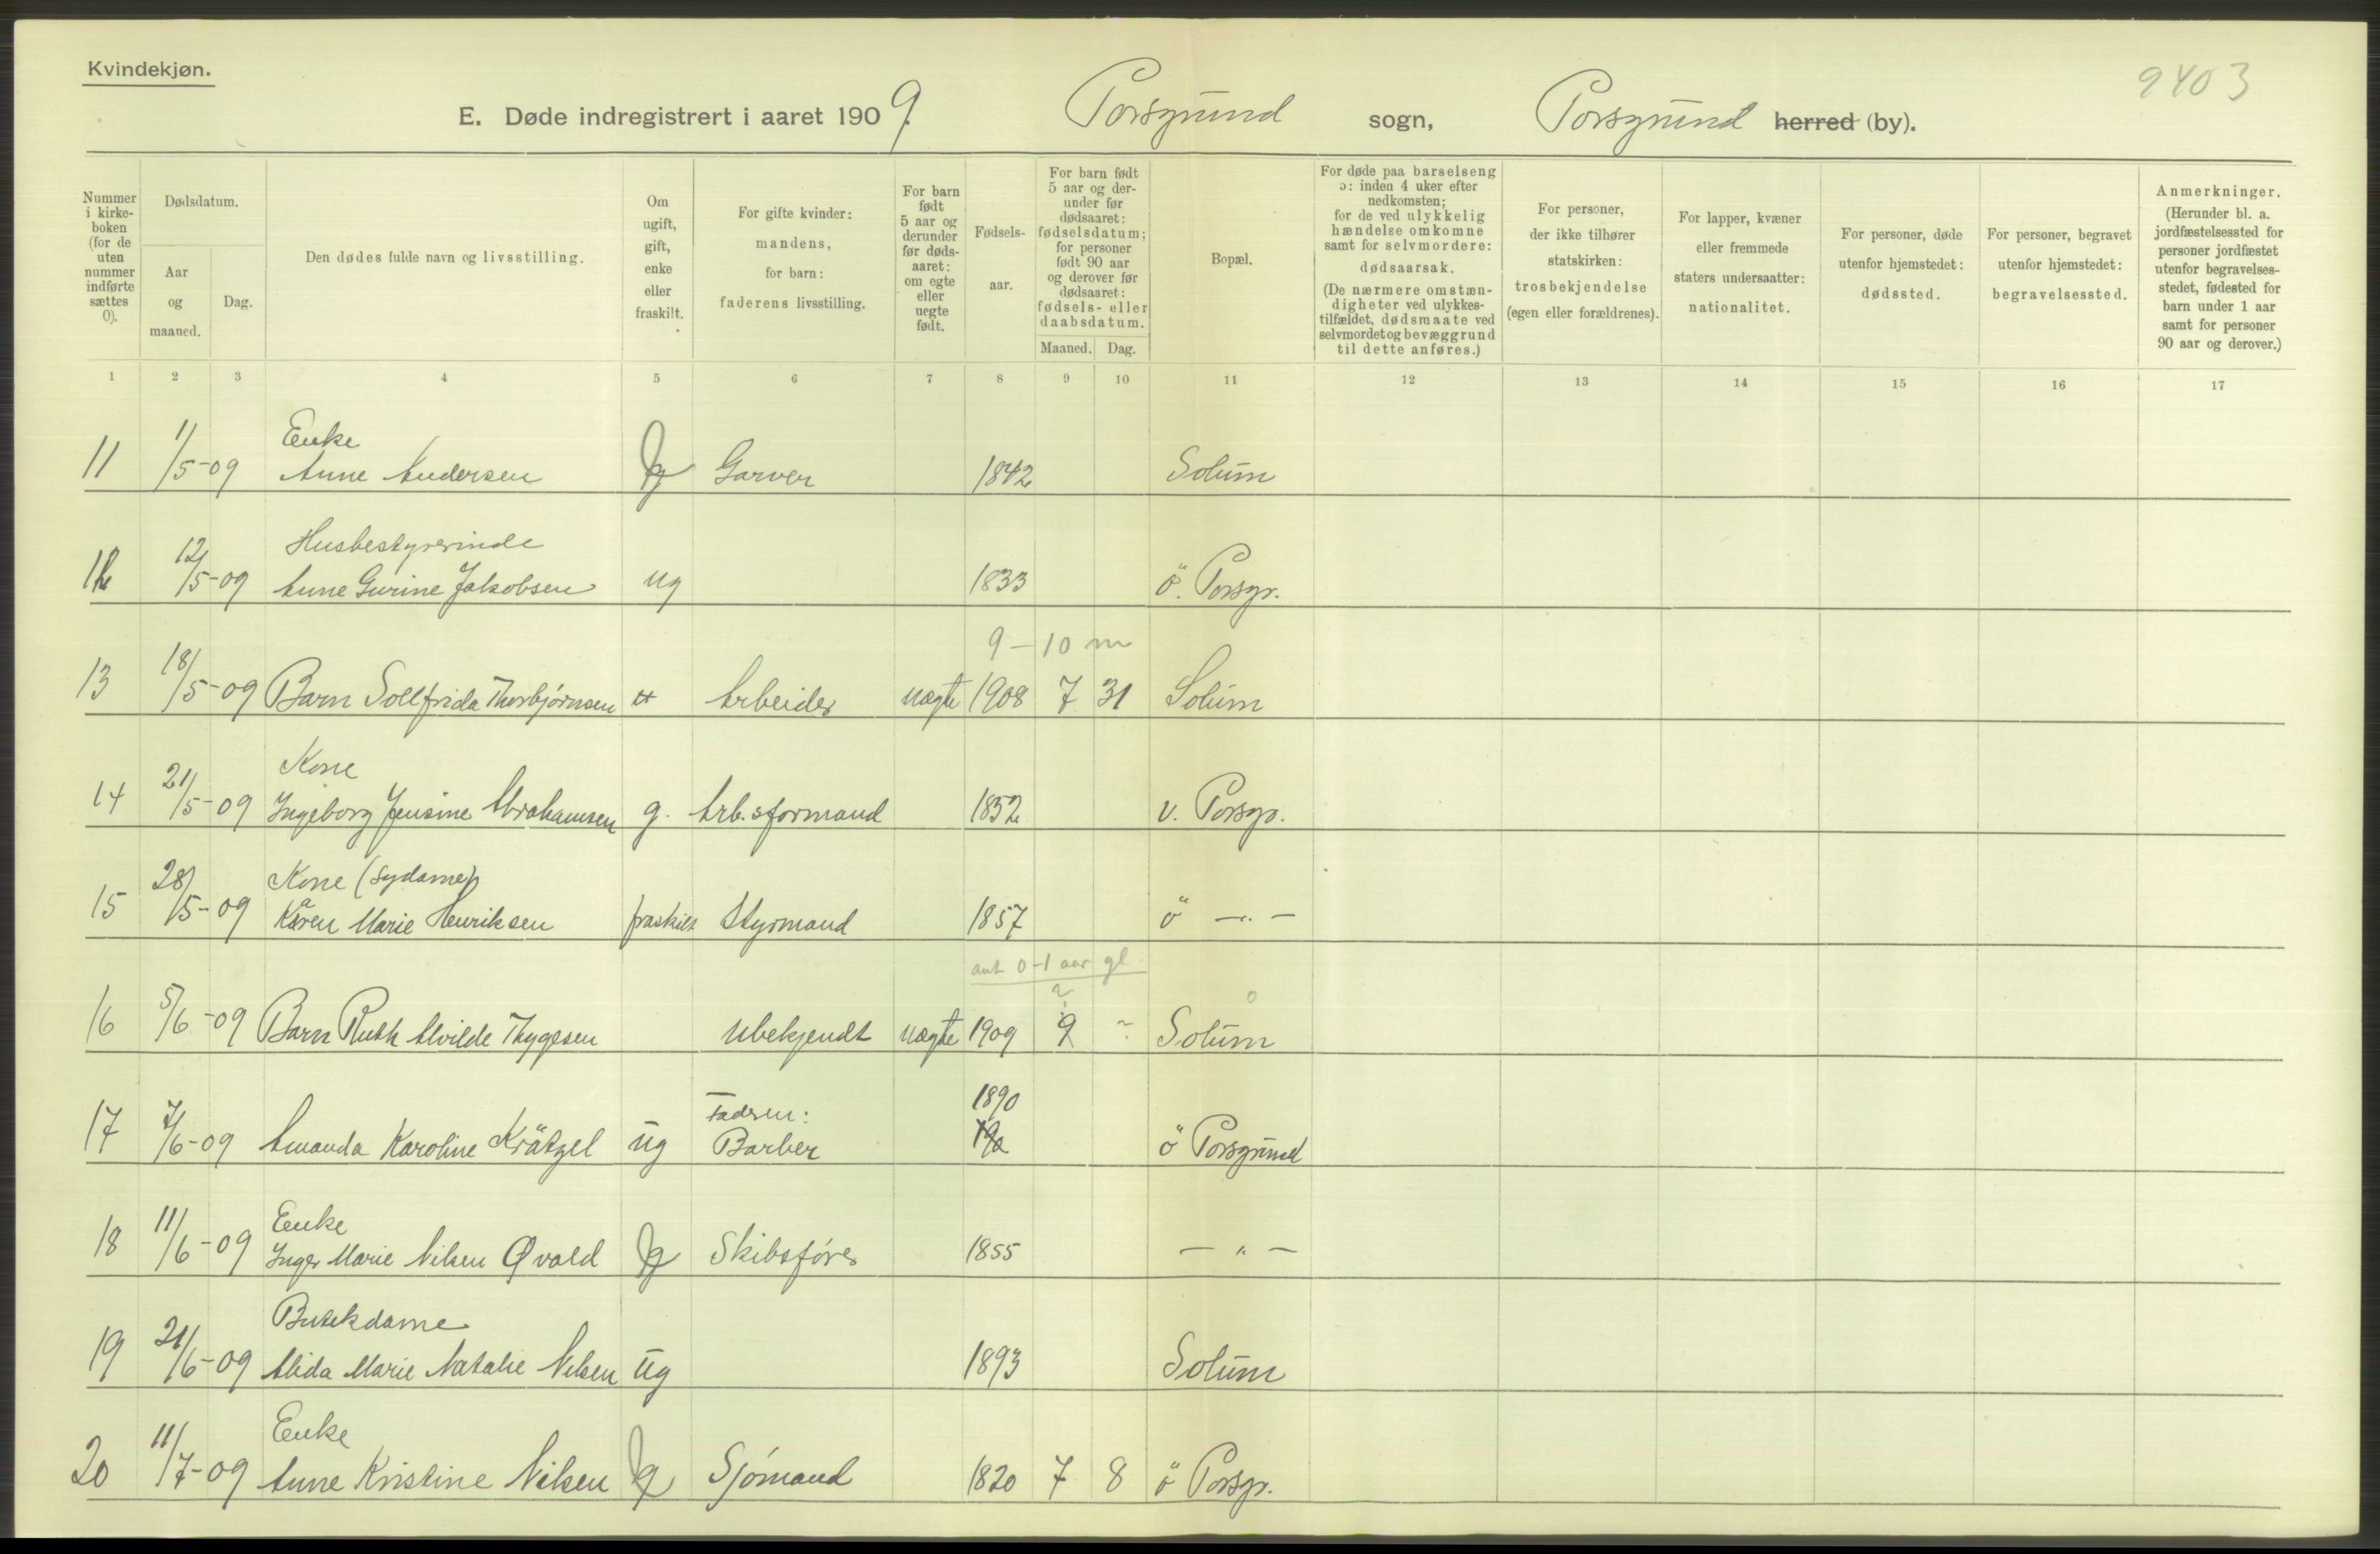 Kvindekjøn.
9403
E. Døde indregistrert i aaret 1909. Porsgrund sogn, Porsgrund herred (by).
Nummer i kirke-boken (for de uten nummer indførte sættes 0).
Dødsdatum.
Aar og maaned.
Dag.
Den dødes fulde navn og livsstilling.
Om ugift, gift, enke eller fraskilt.
For gifte kvinder: mandens, for barn: faderens livsstilling.
For barn født 5 aar og derunder før døds-aaret: om egte eller uegte født.
Fødsels-aar.
For barn født 5 aar og der-under før dødsaaret: fødselsdatum; for personer født 90 aar og derover før dødsaaret: fødsels- eller daabsdatum.
Maaned. Dag.
Bopæl.
For døde paa barselseng ɔ: inden 4 uker efter nedkomsten; for de ved ulykkelig hændelse omkomne samt for selvmordere: dødsaarsak. (De nærmere omstæn-digheter ved ulykkes-tilfældet, dødsmaate ved selvmordet og bevæggrund til dette anføres.)
For personer, der ikke tilhører statskirken: trosbekjendelse (egen eller forældrenes).
For lapper, kvæner eller fremmede staters undersaatter: nationalitet.
For personer, døde utenfor hjemstedet: dødssted.
For personer, begravet utenfor hjemstedet: begravelsessted.
Anmerkninger. (Herunder bl. a. jordfæstelsessted for personer jordfæstet utenfor begravelses-stedet, fødested for barn under 1 aar samt for personer 90 aar og derover.)
1 2 3 4 5 6 7 8 9 10 11 12 13 14 15 16 17
Enke
11 1/5-09 Anne Andersen g Garver 1842 Solum
Husbestyrerinde
12 12/5-09 Anne Gurine Jakobsen ug 1833 ö. Porsgr.
9-10 m
13 18/5-09 Barn Sollfrida Thorbjørnsen Arbeider uegte 1908 7 31 Solum
Kone
14 21/5-09 Ingeborg Jensine Abrahamsen g. Arb.sformand 1852 v. Porsgr.
Kone (Sydame)
15 28/5-09 Karen Marie Henriksen fraskilt Styrmand 1857 ö -"-
ant 0-1 aar gl.
16 5/6-09 Barn Ruth Alvilde Thygesen Ubekjendt uegte 1909 ? Solum
Faderen: 1890
17 7/6-09 Amanda Karoline Krätzel ug Barber ö Porsgrund
Enke
18 11/6-09 Inger Marie Nilsen Qvald g Skibsfører 1855 -"-
Butikdame
19 21/6-09 Alida Marie Natalie Nilsen ug 1893 Solum
Enke
20 11/7-09 Anne Kristine Nilsen g Sjømand 1820 7 8 ö Porsgr.